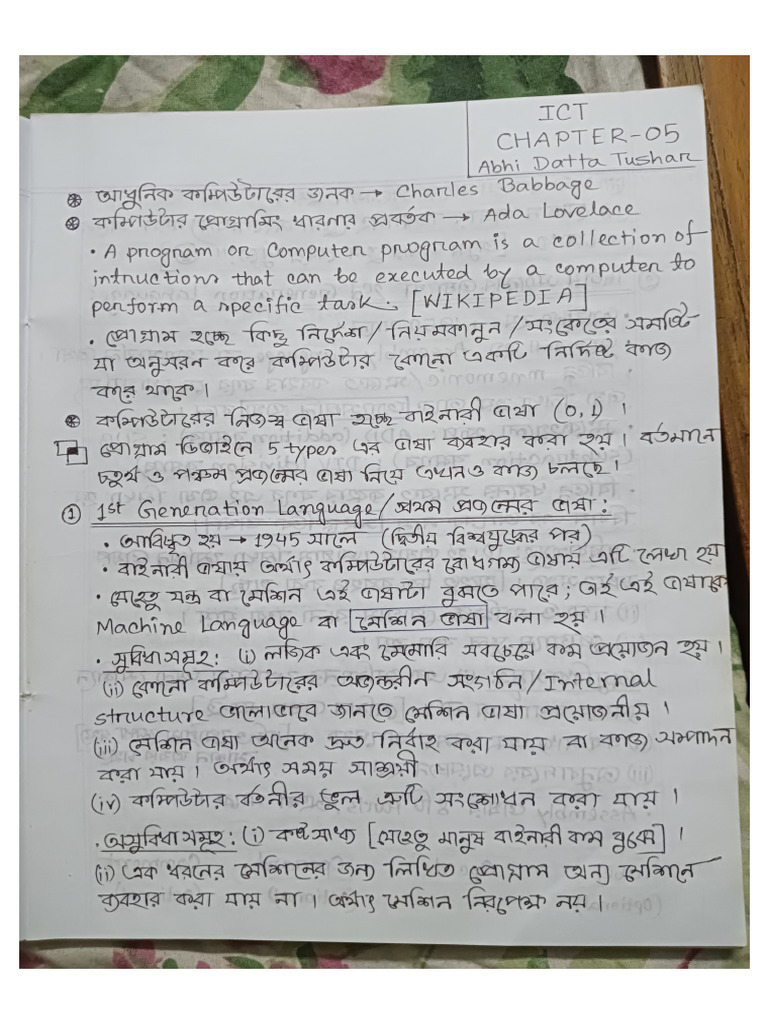 ICT
CHAPTER-05
Abhi Datta Tushar
আধুনিক কম্পিউটারের জনক → Charles Babbage
কম্পিউটার প্রোগ্রামিং ধারনার প্রবর্তক → Ada Lovelace
• A program or computer program is a collection of
intructions that can be executed by a computer to
perform a specific task. [WIKIPEDIA]
• প্রোগ্রাম হচ্ছে কিছু নির্দেশ/নিয়মকানুন/সংকেতের সমষ্টি
যা অনুসরন করে কম্পিউটার কোনো একটি নির্দিষ্ট কাজ
করে থাকে।
কম্পিউটারের নিজস্ব ভাষা হচ্ছে বাইনারী ভাষা (0,1)।
প্রোগ্রাম ডিজাইনে 5 types এর ভাষা ব্যবহার করা হয়। বর্তমানে
চতুর্থ ও পঞ্চম প্রজন্মের ভাষা নিয়ে এখনও কাজ চলছে।
① 1st Generation Language/প্রথম প্রজন্মের ভাষা:
• আবিষ্কৃত হয় → 1945 সালে (দ্বিতীয় বিশ্বযুদ্ধের পর)
• বাইনারী ভাষায় অর্থাৎ কম্পিউটারের বোধগম্য ভাষায় এটি লেখা হয়
• যেহেতু যন্ত্র বা মেশিন এই ভাষাটা বুঝতে পারে; তাই এই ভাষাকে
Machine Language বা মেশিন ভাষা বলা হয়।
• সুবিধাসমূহ: (i) লজিক এবং মেমোরি সবচেয়ে কম প্রয়োজন হয়।
(ii) কোনো কম্পিউটারের অভ্যন্তরীন সংগঠন/Internal
structure ভালোভাবে জানতে মেশিন ভাষা প্রয়োজনীয়।
(iii) মেশিন ভাষা অনেক দ্রুত নির্বাহ করা যায় বা কাজ সম্পাদন
করা যায়। অর্থাৎ সময় সাশ্রয়ী।
(iv) কম্পিউটার বর্তনীর ভুল ত্রুটি সংশোধন করা যায়।
• অসুবিধাসমূহ: (i) কষ্টসাধ্য [যেহেতু মানুষ বাইনারী কম বুঝে]।
(ii) এক ধরনের মেশিনের জন্য লিখিত প্রোগ্রাম অন্য মেশিনে
ব্যবহার করা যায় না। অর্থাৎ মেশিন নিরপেক্ষ নয়।